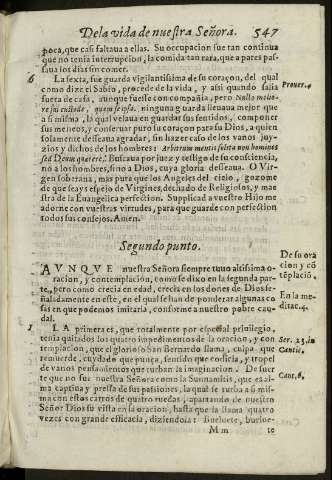 De la vida de nuestra Señora. 547
poca, que casi faltaua a ellas. Su occupacion fue tan continua
que no tenia interrupcion, la comida tan rara, que a pares pas-
saua los dias sin comer.
6 La sexta, fue guarda vigilantissima de su coraçon, del qual
como dize el Sabio, procede la vida, y assi quando salia Prouer. 4
fuera de casa, aunque fuesse con compañia, pero Nullo melio-
re custode, quam se ipsa. ninguna guarda lleuaua mejor que
a si misma, la qual velaua en guardar sus sentidos, componer
sus meneos, y conseruar puro su coraçon para su Dios, a quien
solamente desseaua agradar, sin hazer caso de los vanos juy-
zios y dichos de los hombres: Arbitrum mentis solita non homines
sed Deum quærere. Buscaua por juez y testigo de su consciencia,
no a los hombres, sino a Dios, cuya gloria desseaua. O Vir-
gen soberana, mas pura que los Angeles del cielo, gozome
de que seays espejo de Virgines, dechado de Religiosos, y mae
stra de la Euangelica perfection. Supplicad a vuestro Hijo me
adorne con vuestras virtudes, para que guarde con perfection
todos sus consejos. Amen.
Segundo punto.
AVNQVE nuestra Señora siempre tuuo altissima o-
racion, y contemplacion, como se dixo en la segunda par-
te, pero como crecia en edad, crecia en los dones de Dios se-
ñaladamente en este, en el qual se han de ponderar algunas co
sas en que podemos imitarla, conforme a nuestro pobre cau-
dal.
De su ora
cion y cō
tēplació.
En la me
ditac. 4.
1 LA primera es, que totalmente por especial priuilegio,
tenia quitados los quatro impedimentos de la oracion, y con
templacion, que el glorioso san Bernardo llama, culpa que
remuerde, cuydado que punça, sentido que cosficia, y tropel
de vanos pensamientos que turban la imaginacion. De suer
te que no fue nuestra Señora como la Sunnamitis, que es ani
ma captiua y presa de sus passiones, la qual se turba a si mis-
ma con estos carros de quatro ruedas, apartando de nuestro
Señor Dios su vista en la oracion, hasta que la llama quatro
vezes con grande efficacia, diziendola: Bueluete, buelue-
Ser. 23. in
Cantic.
Cant. 6.
M m te